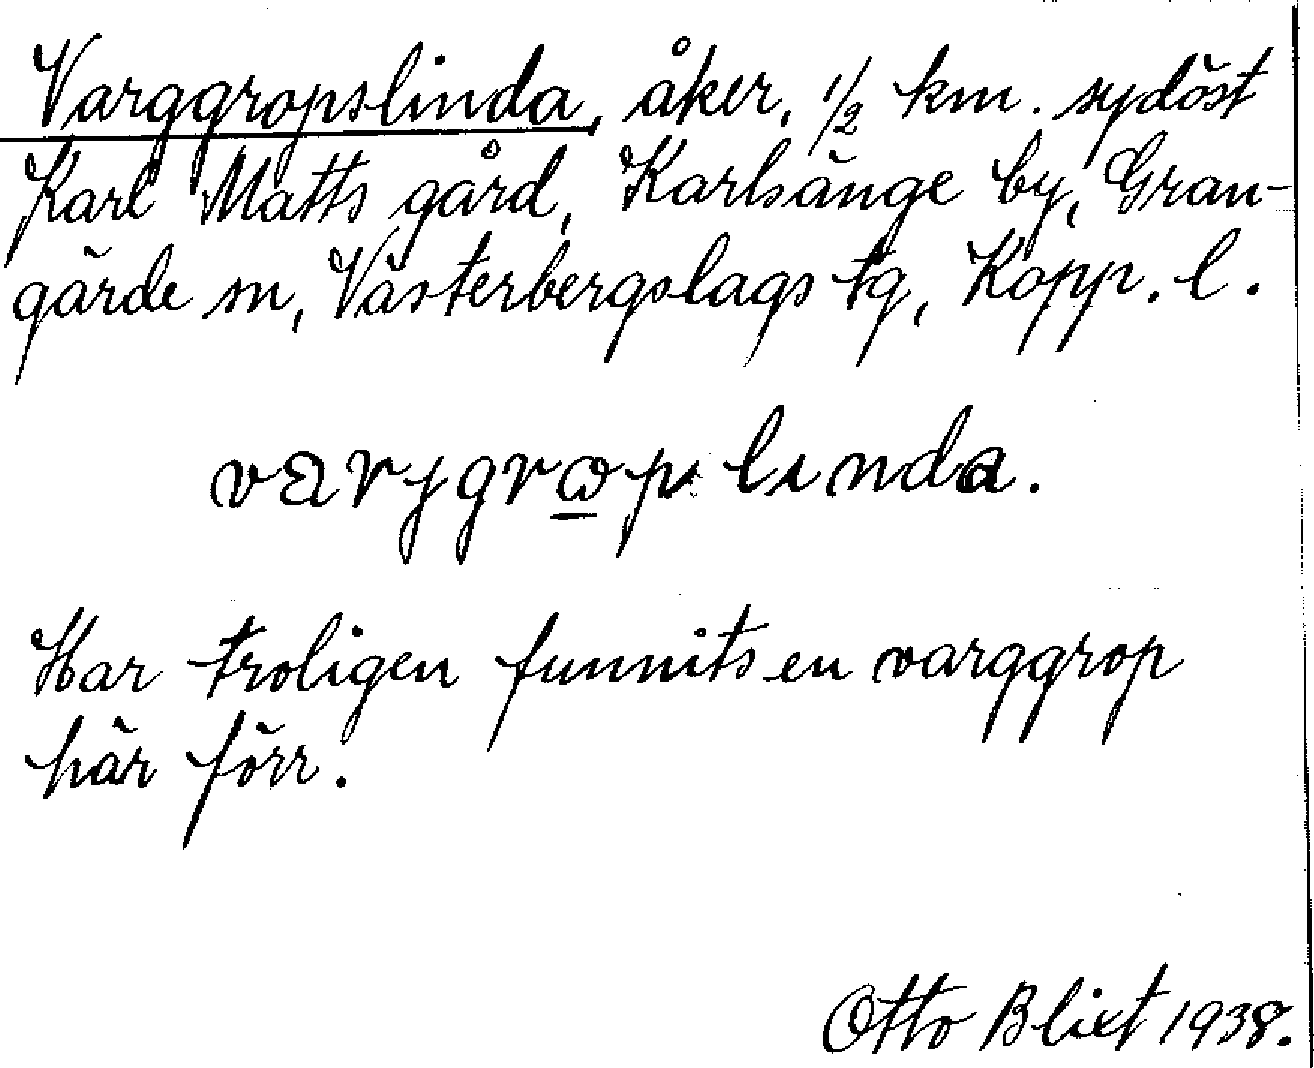 Varggropslinda, åker, 1/2 km. sydöst
Karl Matts gård, Karlsänge by, Gran-
gärde sn, Västerbergslags tg, Kopp. l.
varjgrωp linda.
Har troligen funnits en varggrop
här förr.
Otto Blixt 1938.